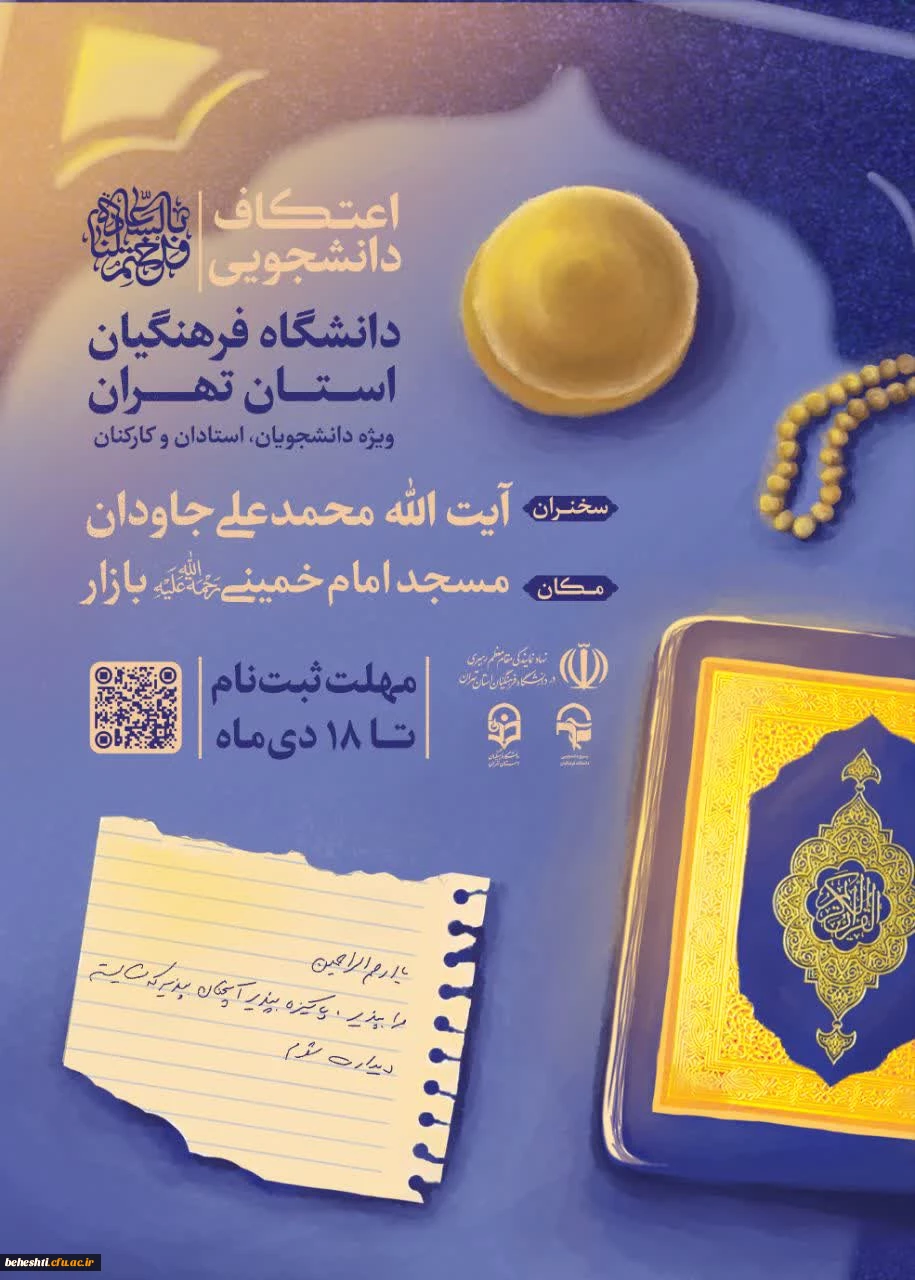 اعتکاف
دانشجویی
فاختم لنا بالسعادة
دانشگاه فرهنگیان
استان تهران
ویژه دانشجویان، استادان و کارکنان
سخنران
آیت الله محمدعلی جاودان
مکان
مسجد امام خمینی رحمة الله علیه بازار
نهاد نمایندگی مقام معظم رهبری
در دانشگاه فرهنگیان استان تهران
دانشگاه فرهنگیان
استان تهران
مهلت ثبت‌نام
تا ۱۸ دی‌ماه
القرآن الكريم
یا ارحم الراحمین
مرا بپذیر، پاکیزه بپذیر آنچنان بپذیر که شایسته
دیدارت شوم
beheshti.cfu.ac.ir